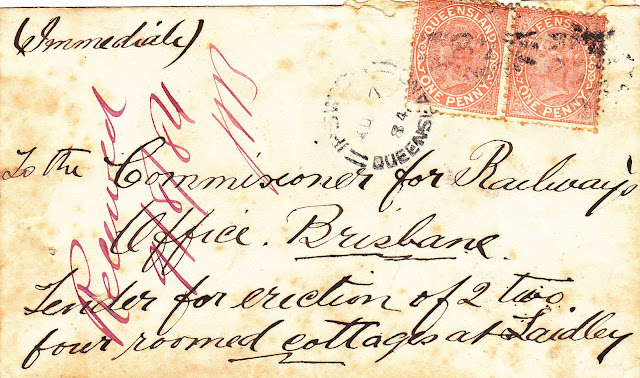 (Immediate)
QUEENSLAND
ONE PENNY
QUEENSLAND
ONE PENNY
QUEENSLAND
84
Received
8/84
To the Commissioner for Railways
Office. Brisbane
Tender for erction of 2 two
four roomed cottages at Laidley